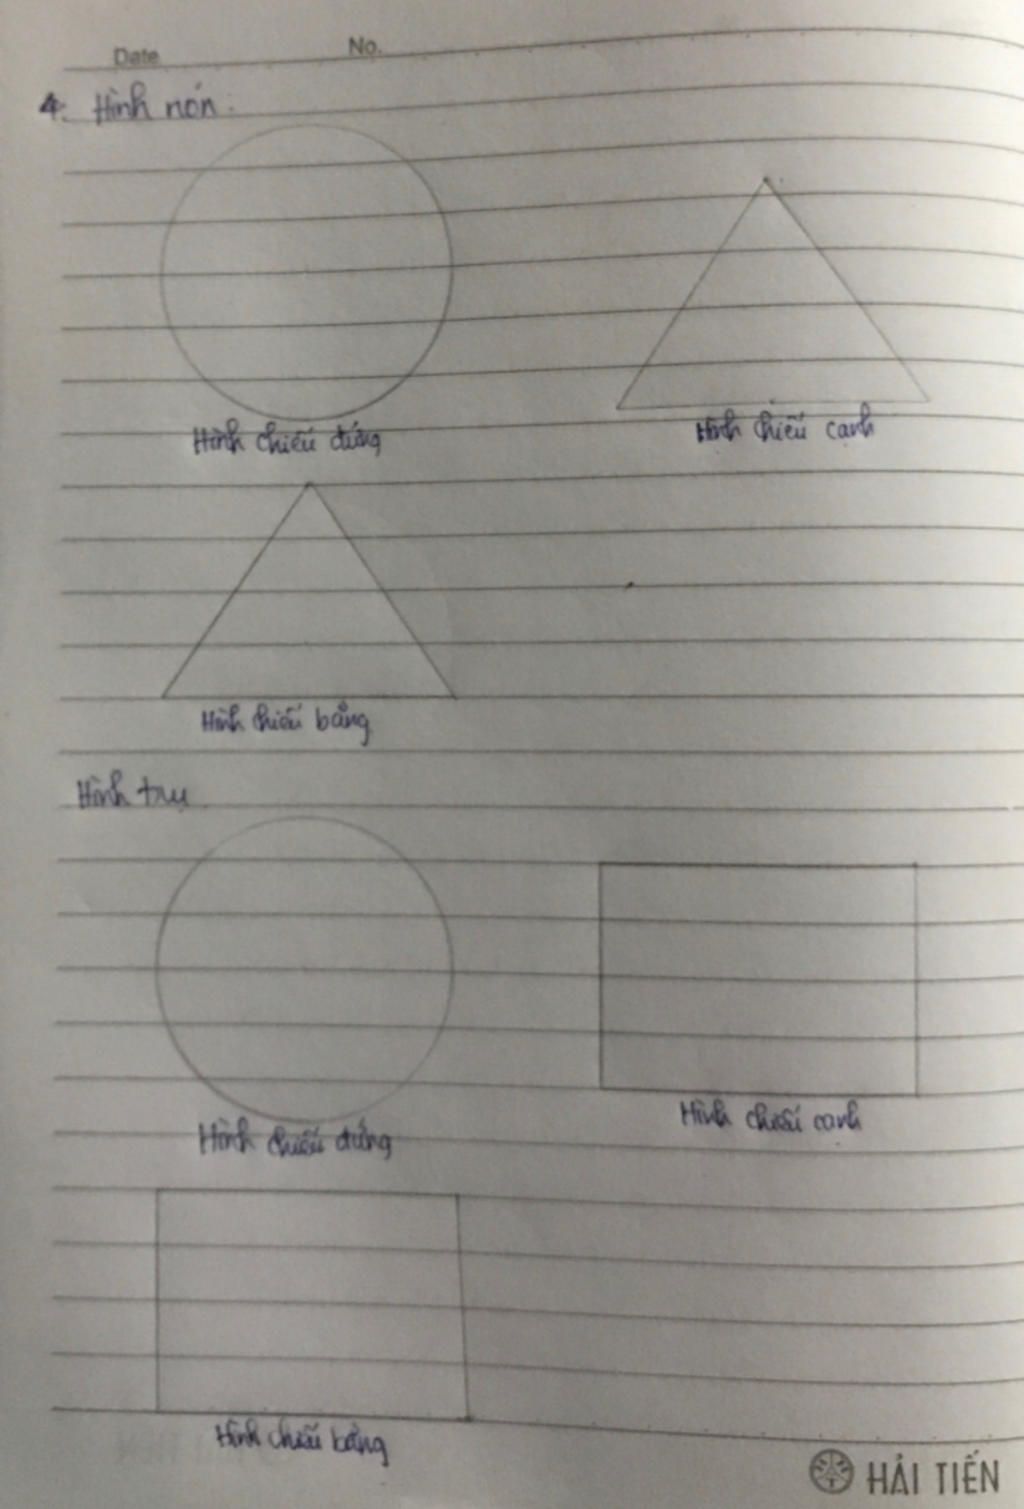 Date No.
4. Hình nón:
Hình chiếu đứng Hình chiếu cạnh
Hình chiếu bằng
Hình trụ
Hình chiếu đứng Hình chiếu cạnh
Hình chiếu bằng
HẢI TIẾN